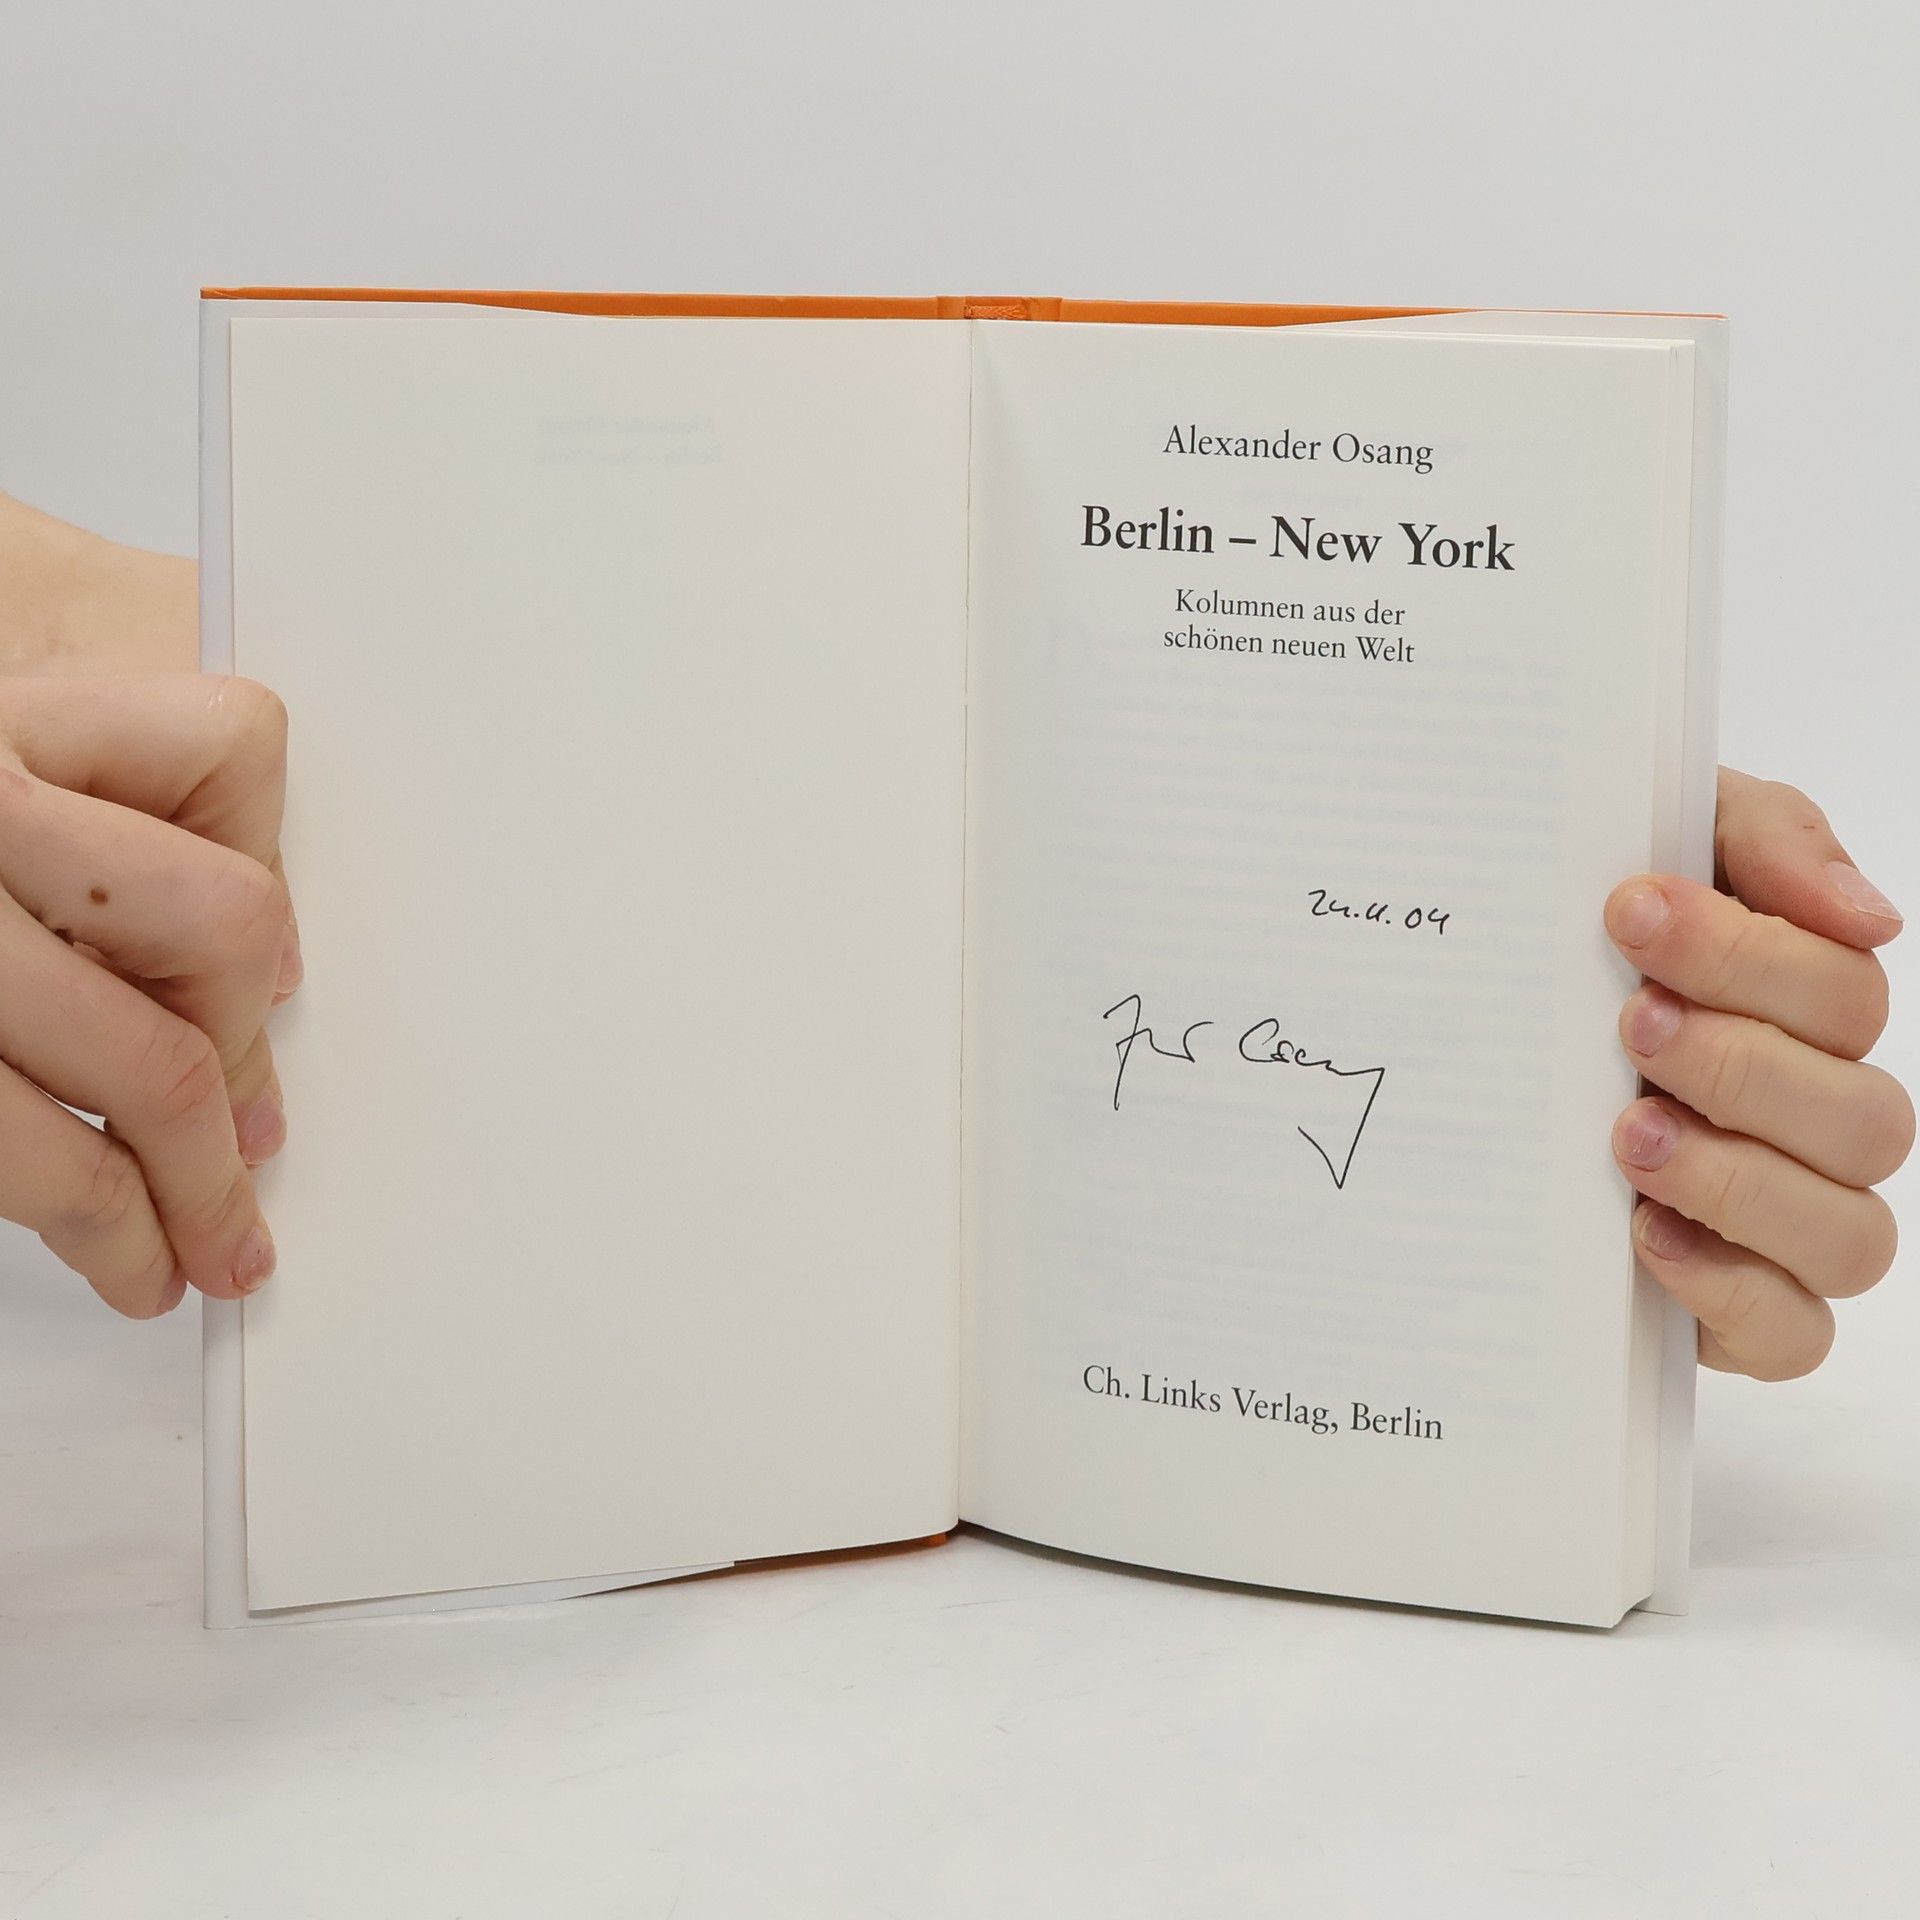 Alexander Osang
Berlin – New York
Kolumnen aus der
schönen neuen Welt
24.11.04
Osang
Ch. Links Verlag, Berlin